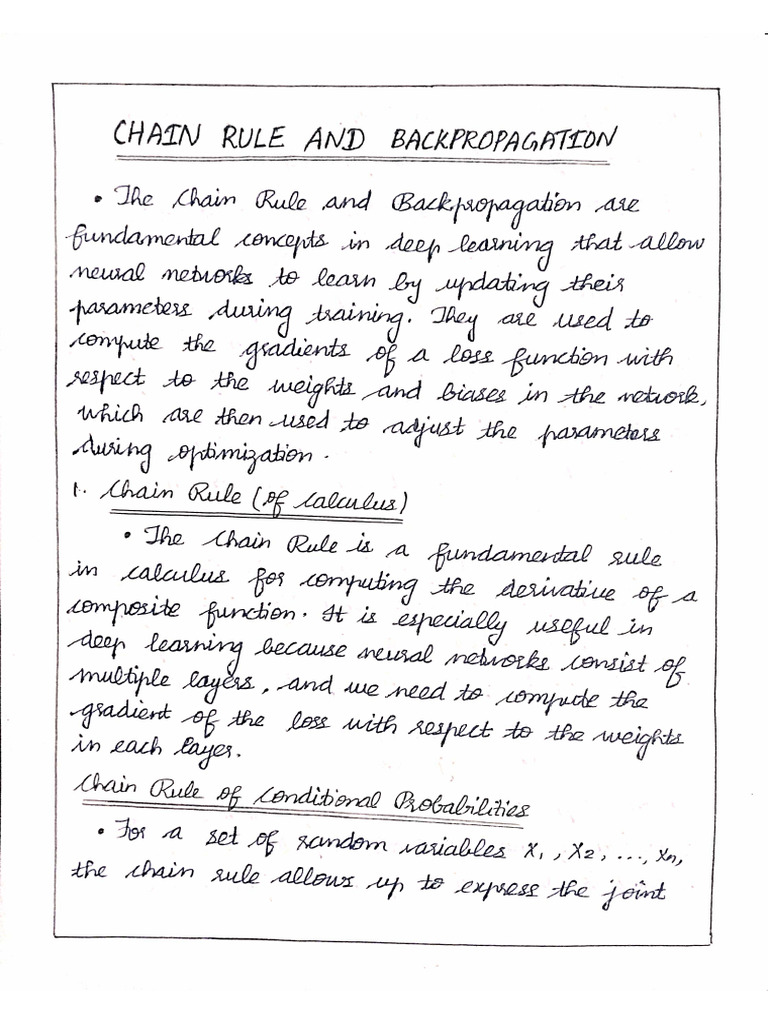 CHAIN RULE AND BACKPROPAGATION
• The Chain Rule and Backpropagation are
fundamental concepts in deep learning that allow
neural networks to learn by updating their
parameters during training. They are used to
compute the gradients of a loss function with
respect to the weights and biases in the network,
which are then used to adjust the parameters
during optimization.
1. Chain Rule (of Calculus)
• The Chain Rule is a fundamental rule
in calculus for computing the derivative of a
composite function. It is especially useful in
deep learning because neural networks consist of
multiple layers, and we need to compute the
gradient of the loss with respect to the weights
in each layer.
Chain Rule of Conditional Probabilities
• For a set of random variables X1, X2, ..., Xn,
the chain rule allows up to express the joint